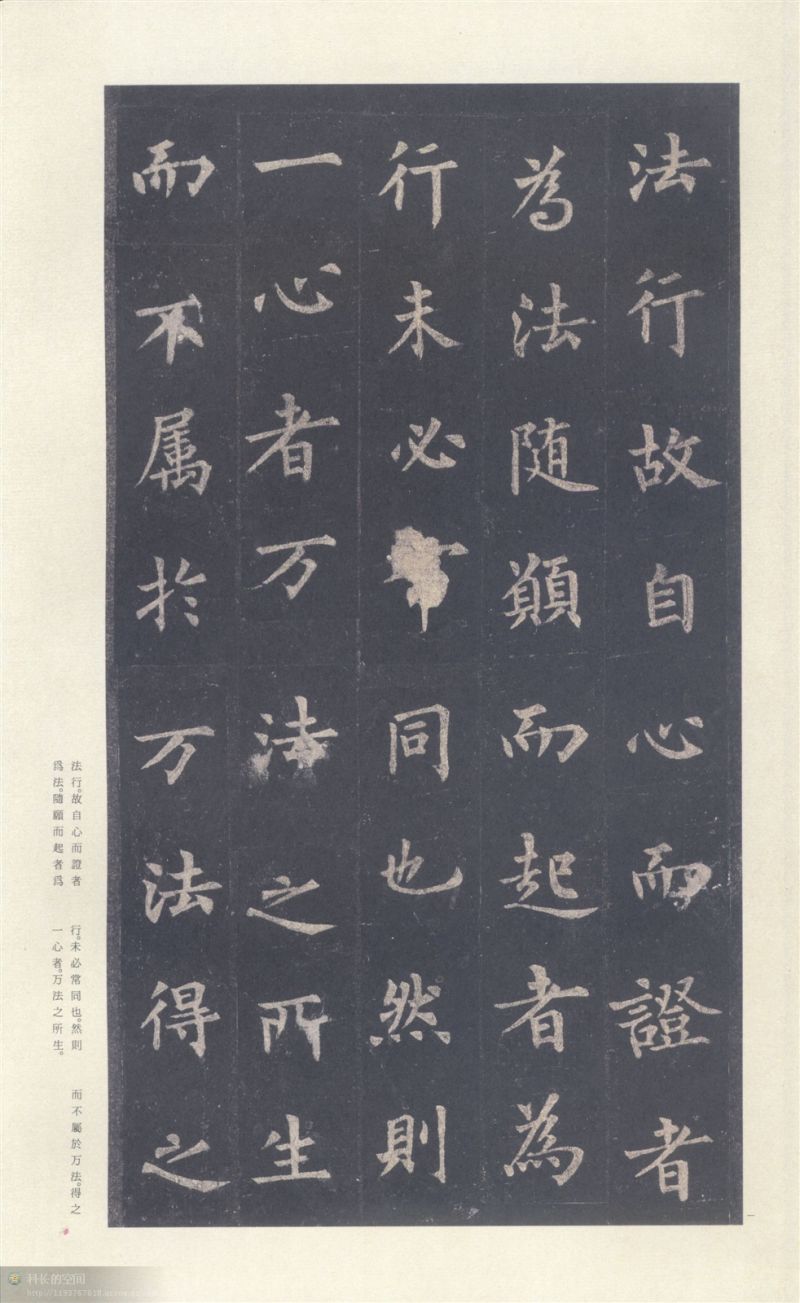 法行故自心而證者
為法随願而起者為
行未必常同也然則
一心者万法之所生
而不属於万法得之
法行。故自心而證者
爲法。隨願而起者爲
行。未必常同也。然則
一心者。万法之所生。
而不屬於万法。得之
一
科长的空间